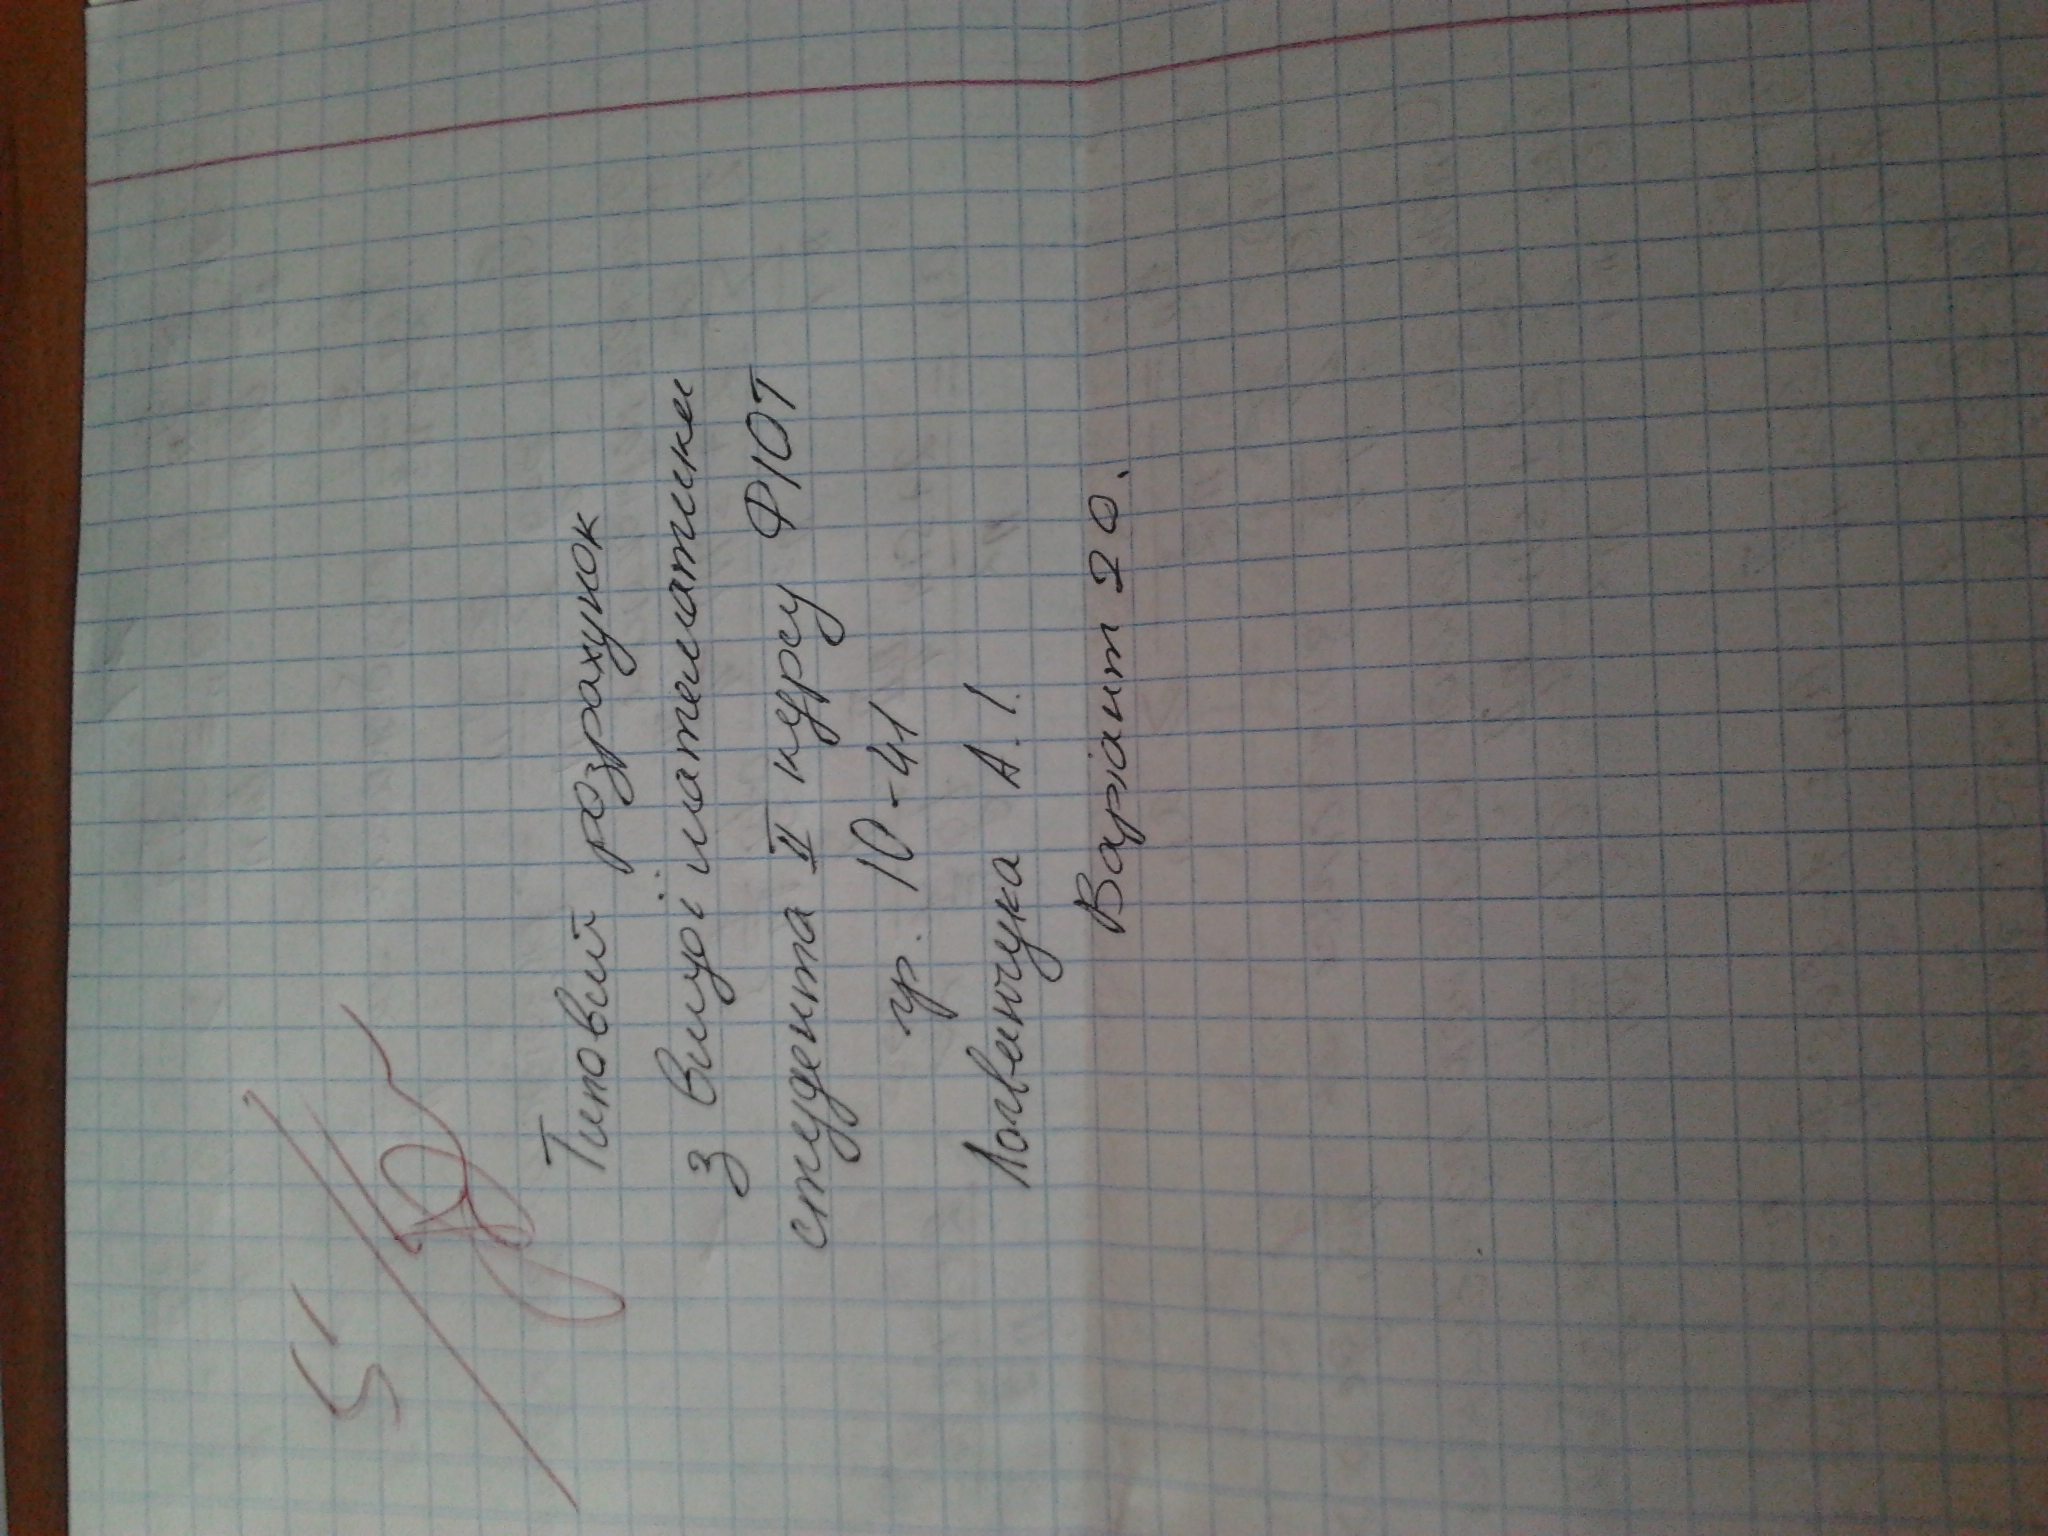 5
Типовий розрахунок
з вищої математики
студента II курсу ФЮТ
гр. Ю-41
Логвинчука А.І.
Варіант 20.